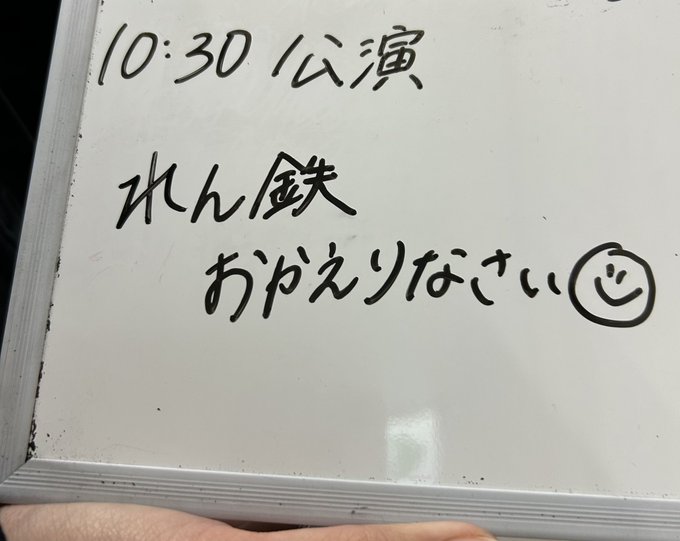 10:30 公演
れん鉄
おかえりなさい